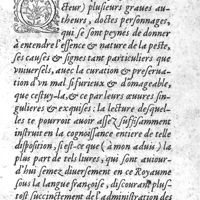 cteur) plusieurs graues au-
theurs, doctes personnages,
qui se sont peynés de donner
à entendre l'essence & nature de la peste,
ses causes & signes tant particuliers que
vniuersels, auec la curation & preserua-
tion d'vn mal si furieux & domageable,
que cestuy-la, & ce par leurs œuures sin-
gulieres & exquises: la lecture desquel-
les te pourroit auoir assez suffisamment
instruit en la cognoissance entiere de telle
disposition, si est-ce que (à mon aduis) la
plus part de tels liures, qui sont auiour-
d'huy semez diuersement en ce Royaume
sous la langue françoise, discourant plus-
tost succinctement de l'administration des